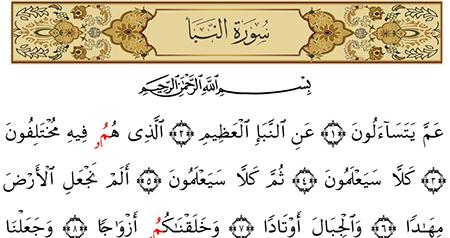 سُورَةُ النَّبَإِ
بِسْمِ ٱللَّهِ ٱلرَّحْمَٰنِ ٱلرَّحِيمِ
عَمَّ يَتَسَآءَلُونَ ﴿١﴾ عَنِ النَّبَإِ الْعَظِيمِ ﴿٢﴾ الَّذِى هُمُۥ فِيهِ مُخْتَلِفُونَ
﴿٣﴾ كَلَّا سَيَعْلَمُونَ ﴿٤﴾ ثُمَّ كَلَّا سَيَعْلَمُونَ ﴿٥﴾ أَلَمْ نَجْعَلِ الْأَرْضَ
مِهَٰدًا ﴿٦﴾ وَالْجِبَالَ أَوْتَادًا ﴿٧﴾ وَخَلَقْنَٰكُمُۥ أَزْوَٰجًا ﴿٨﴾ وَجَعَلْنَا